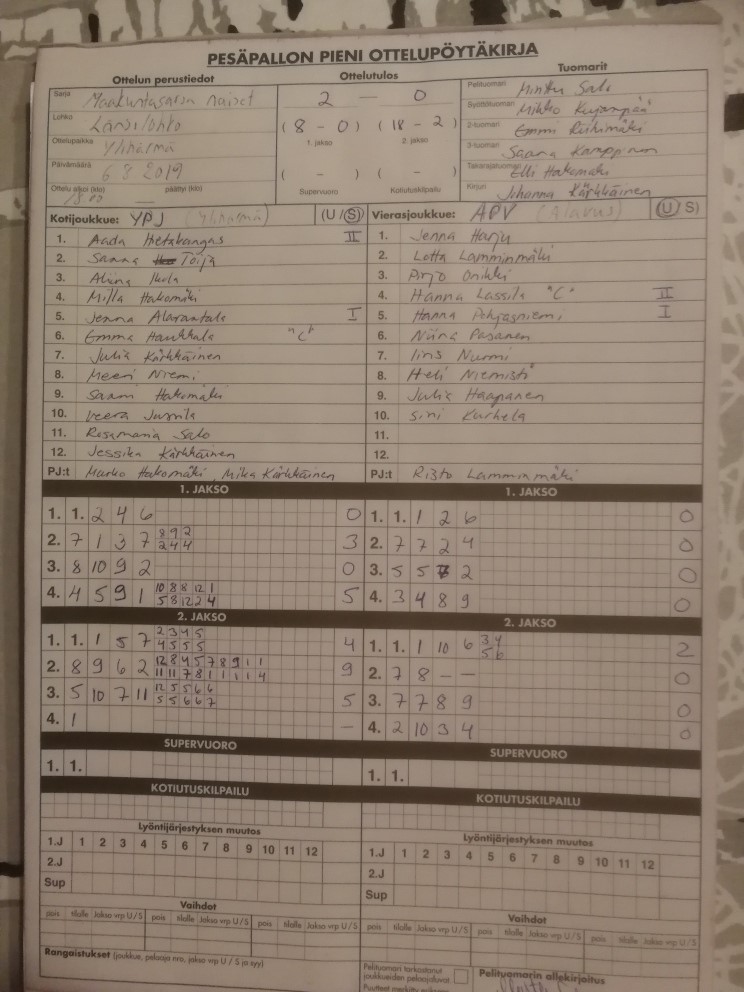 PESÄPALLON PIENI OTTELUPÖYTÄKIRJA
Ottelun perustiedot
Ottelutulos
Tuomarit
Sarja Maakuntasarja naiset
Lohko Länsilohko
Ottelupaikka Ylihärmä
Päivämäärä 6 8 2019
Ottelu alkoi (klo) 18.00 päättyi (klo) —
2 — 0
( 8 - 0 ) ( 18 - 2 )
1. jakso 2. jakso
( - ) ( - )
Supervuoro Kotiutuskilpailu
Pelituomari Minttu Salo
Syöttötuomari Mihko Kujanpää
2-tuomari Emmi Riihimäki
3-tuomari Saana Kamppinen
Takarajatuomari Elli Hakomäki
Kirjuri Johanna Kärkkäinen
Kotijoukkue: YPJ (Ylihärmä) (U / S)
1. Aada Hietakangas II
2. Sanna Toija
3. Alina Ikola
4. Milla Hakomäki
5. Jenna Alarantala I
6. Emma Haukkala "C"
7. Julia Kärkkäinen
8. Meeri Niemi
9. Saani Hakomäki
10. Veera Jussila
11. Rosamaria Salo
12. Jessika Kärkkäinen
PJ:t Marko Hakomäki, Mika Kärkkäinen
Vierasjoukkue: APV (Alavus) (U / S)
1. Jenna Harju
2. Lotta Lamminmäki
3. Pirjo Onikki
4. Hanna Lassila "C" II
5. Hanna Pohjasniemi I
6. Niina Pasanen
7. Iiris Nurmi
8. Heli Niemistö
9. Julia Haapanen
10. Sini Kurhela
11.
12.
PJ:t Risto Lamminmäki
1. JAKSO
1. 1. 2 4 6 0
2. 7 1 3 7 8 9 2 3
2 4 4
3. 8 10 9 2 0
4. 4 5 9 1 10 8 8 12 1 5
5 8 12 2 4
1. JAKSO
1. 1. 1 2 6 0
2. 7 7 2 4 0
3. 5 5 7 2 0
4. 3 4 8 9 0
2. JAKSO
1. 1. 1 5 7 2 3 4 5 4
4 5 5 5
2. 8 9 6 2 12 8 4 5 7 8 9 1 1 9
11 11 7 8 1 1 1 1 4
3. 5 10 7 11 12 5 5 6 6 5
5 5 6 6 7
4. 1 —
2. JAKSO
1. 1. 1 10 6 3 4 2
5 6
2. 7 8 — — 0
3. 7 7 8 9 0
4. 2 10 3 4 0
SUPERVUORO
1. 1.
SUPERVUORO
1. 1.
KOTIUTUSKILPAILU
KOTIUTUSKILPAILU
Lyöntijärjestyksen muutos
1.J 1 2 3 4 5 6 7 8 9 10 11 12
2.J
Sup
Lyöntijärjestyksen muutos
1.J 1 2 3 4 5 6 7 8 9 10 11 12
2.J
Sup
Vaihdot
pois tilalle Jakso vrp U/S pois tilalle Jakso vrp U/S pois tilalle Jakso vrp U/S
Vaihdot
pois tilalle Jakso vrp U/S pois tilalle Jakso vrp U/S pois tilalle Jakso vrp U/S
Rangaistukset (joukkue, pelaaja nro, jakso vrp U / S ja syy)
Pelituomari tarkastanut
joukkueiden pelaajaluvat
Puutteet merkitty
Pelituomarin allekirjoitus